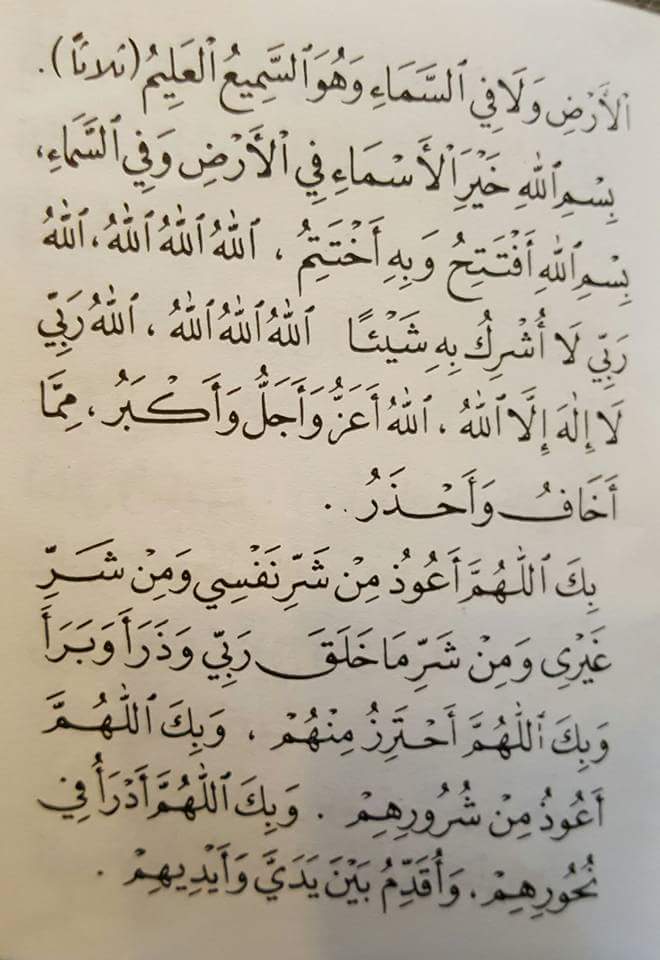 ٱلْأَرْضِ وَلَا فِي ٱلسَّمَاءِ وَهُوَ ٱلسَّمِيعُ ٱلْعَلِيمُ (ثلاثاً).
بِسْمِ ٱللهِ خَيْرِ ٱلْأَسْمَاءِ فِي ٱلْأَرْضِ وَفِي ٱلسَّمَاءِ،
بِسْمِ ٱللهِ أَفْتَتِحُ وَبِهِ أَخْتَتِمُ، ٱللهُ ٱللهُ ٱللهُ، ٱللهُ
رَبِّي لَا أُشْرِكُ بِهِ شَيْئًا ٱللهُ ٱللهُ ٱللهُ، ٱللهُ رَبِّي
لَا إِلٰهَ إِلَّا ٱللهُ، ٱللهُ أَعَزُّ وَأَجَلُّ وَأَكْبَرُ، مِمَّا
أَخَافُ وَأَحْذَرُ.
بِكَ ٱللّٰهُمَّ أَعُوذُ مِنْ شَرِّ نَفْسِي وَمِنْ شَرِّ
غَيْرِي وَمِنْ شَرِّ مَا خَلَقَ رَبِّي وَذَرَأَ وَبَرَأَ
وَبِكَ ٱللّٰهُمَّ أَحْتَرِزُ مِنْهُمْ، وَبِكَ ٱللّٰهُمَّ
أَعُوذُ مِنْ شُرُورِهِمْ. وَبِكَ ٱللّٰهُمَّ أَدْرَأُ فِي
نُحُورِهِمْ. وَأُقَدِّمُ بَيْنَ يَدَيَّ وَأَيْدِيهِمْ.